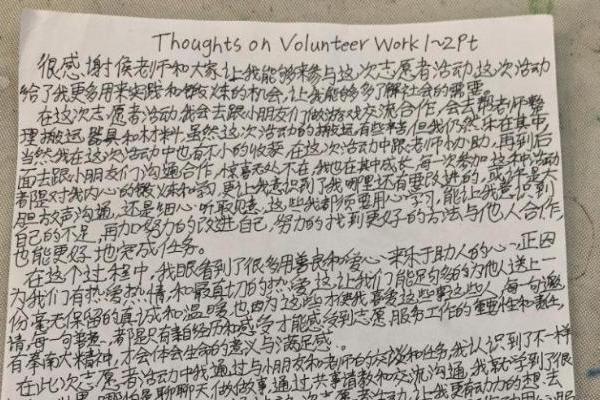 Thoughts on Volunteer Work 1~2Pt
很感谢侯老师和大家让我能够来参与这次志愿者活动这次活动
给了我更多用来实践和做义工的机会,让我能够多了解社会的需要。
在这次志愿者活动我会去跟小朋友们做游戏交流合作,会去帮老师整
理搬运器具和材料虽然这次活动的搬运有些辛苦但我仍然乐在其中,
当然我在这次活动中也有不小的收获在这次活动中跟老师协助,再到后
面去跟小朋友们沟通合作,惊喜无处不在,我也在其中成长,每一次参加这种活动
都是对我内心的,更让我意识到了我哪里还有要改进的,或许是大
胆放声沟通,还是细心听取见意,这些我都须要用心学习,能让我意识到
自己的不足,再加努力的改进自己,努力的找到更好的方法与他人合作,
也能更好地完成任务。
在这个过程中,我眼看到了很多用善良和爱心来乐于助人的心正因
为我们有热爱热情,和最真切的热爱,这让我们能足够多的为他人送上一
份毫无保留的真诚和温暖也因为这些才使我喜爱这些事这些人,每一句邀
请,每一句,都是只有亲自经历和感受才能感受到志愿服务工作的重要性和责任,
有奉南大精神,才会体会生命的意义与满足感。
在此次志愿者活动中我通过与小朋友和老师的交谈和任务我认识到了不一样
哪怕是聊聊天做做事通过共事请教和交流沟通,我就学到了很
次志愿者活动,让我更有动力的想去